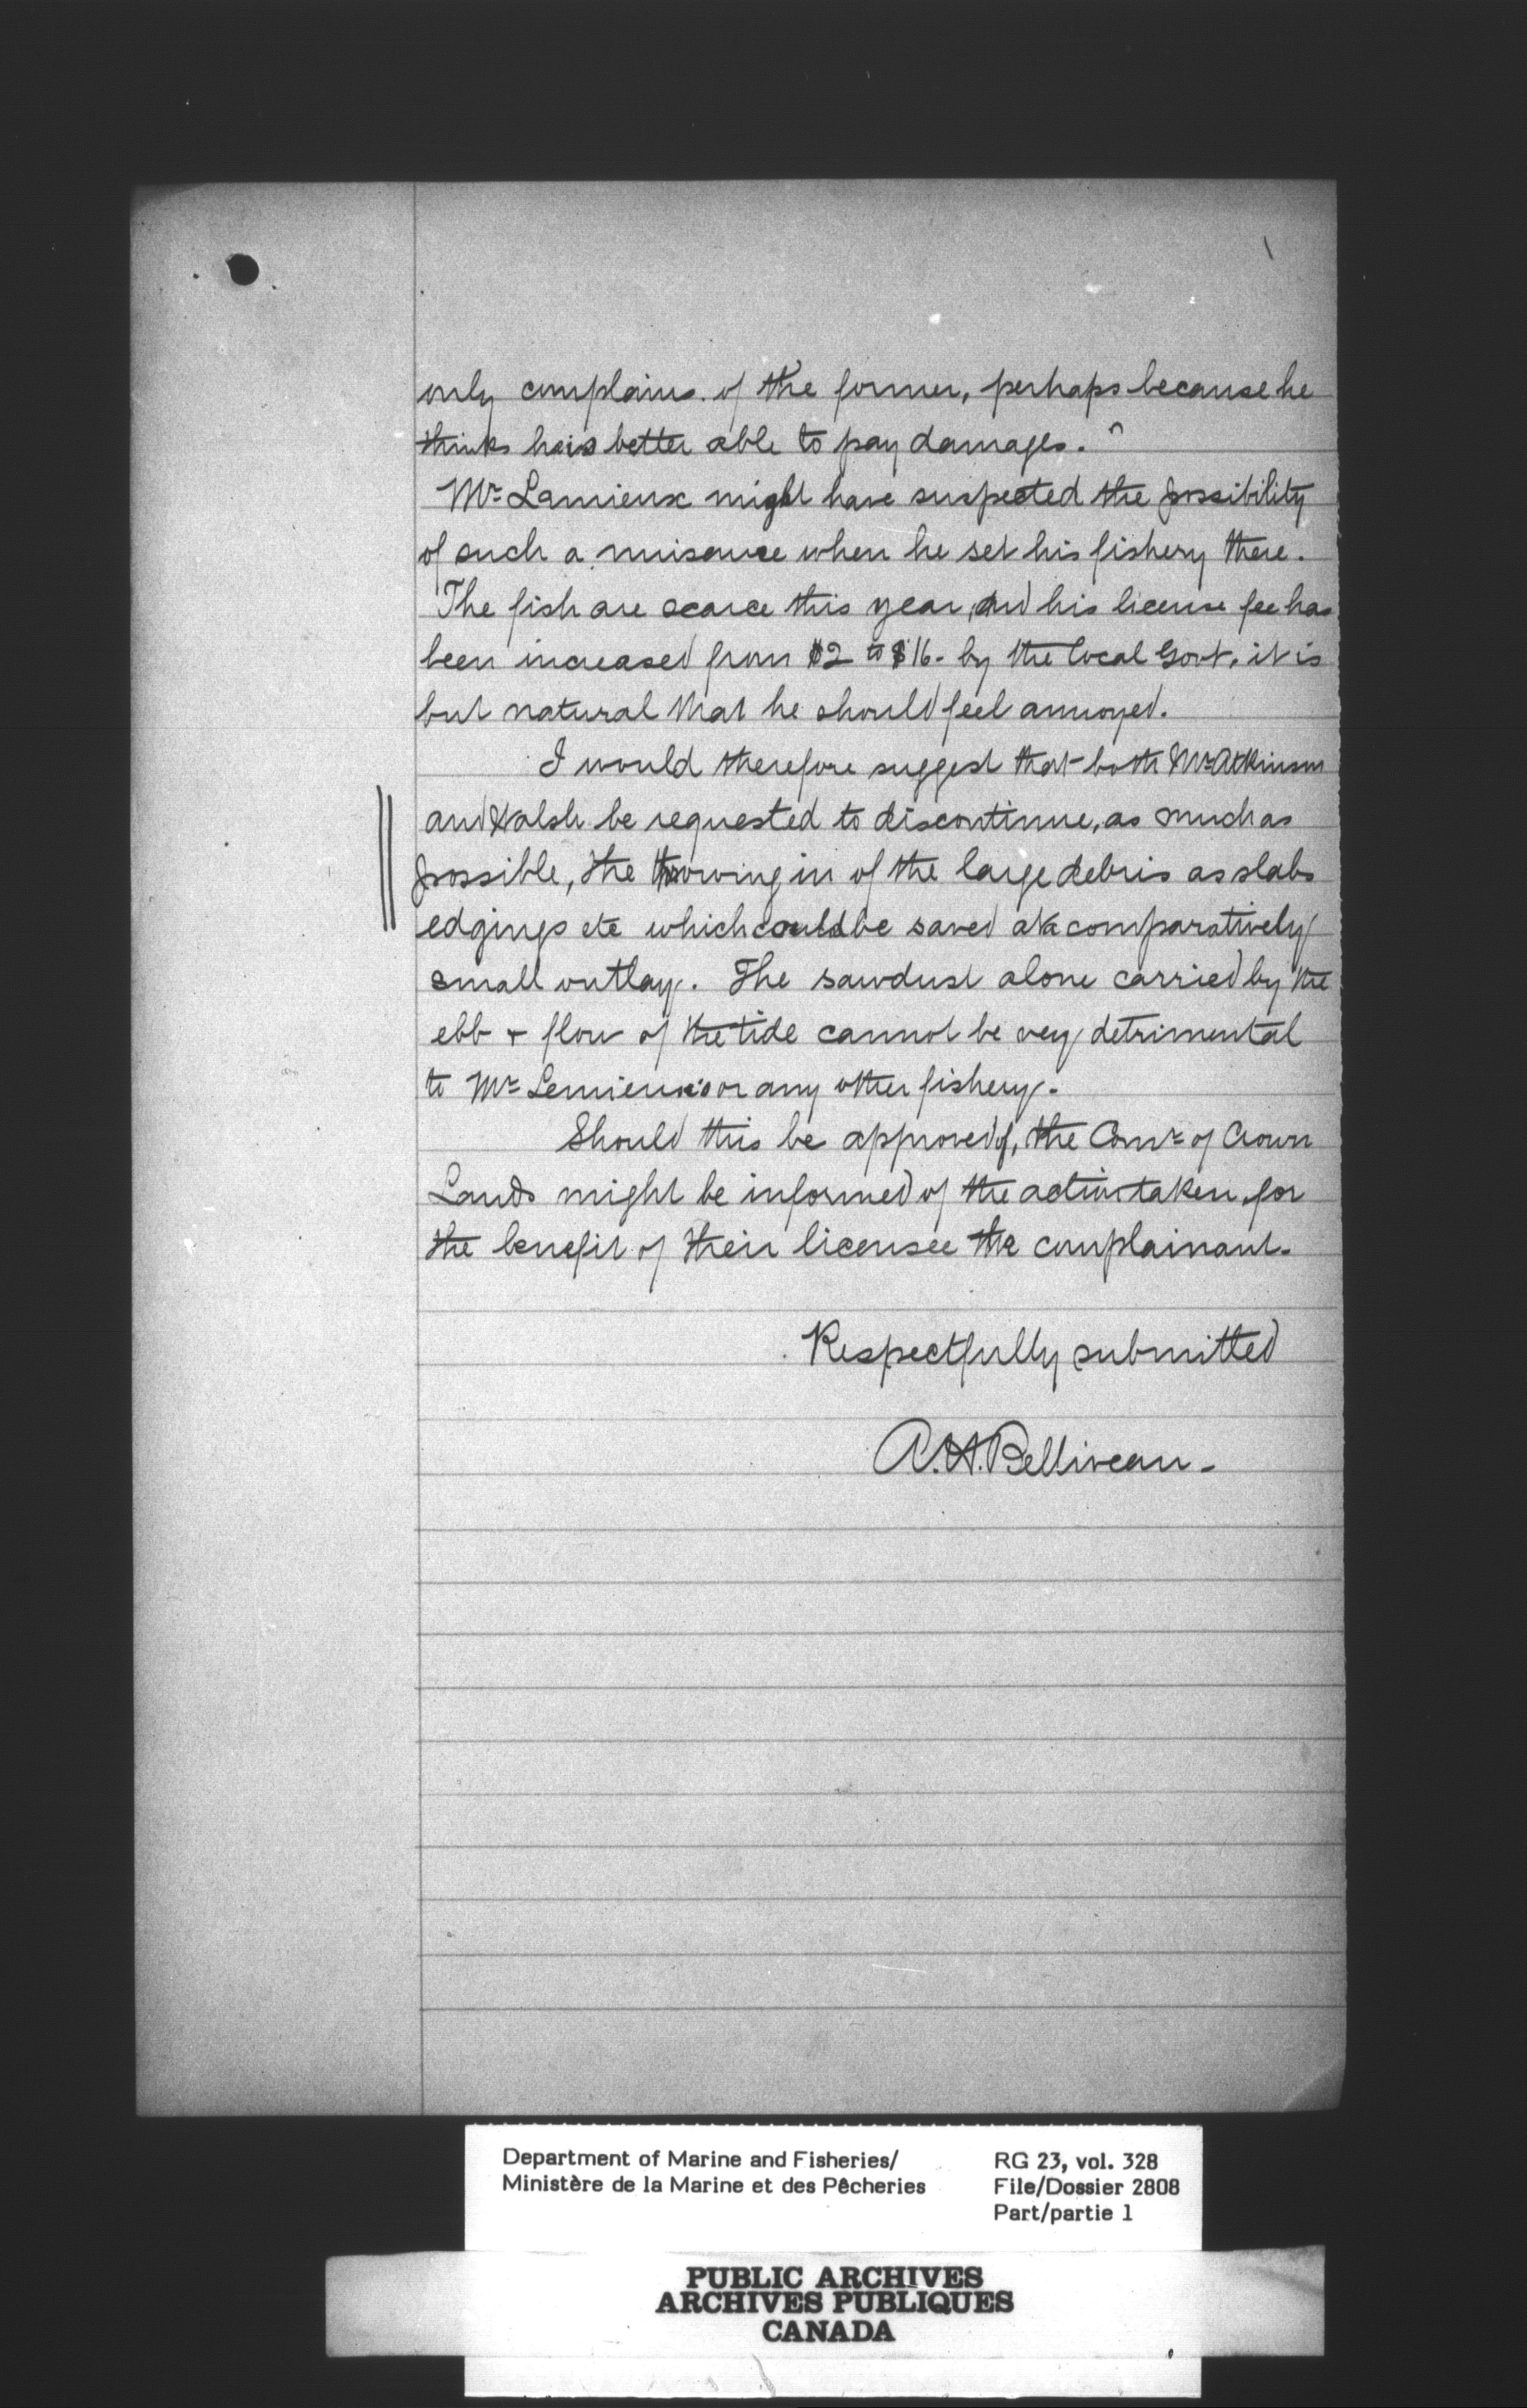 only complains of the former, perhaps because he
thinks he is better able to pay damages."
Mr Lamieux might have suspected the possibility
of such a nuisance when he set his fishery there.
The fish are scarce this year, and his license fee has
been increased from $2 to $16- by the local Govt, it is
but natural that he should feel annoyed.
I would therefore suggest that both Mr Atkinson
and Walsh be requested to discontinue, as much as
possible, the throwing in of the large debris as slabs
edgings etc which could be saved at a comparatively
small outlay. The sawdust alone carried by the
ebb & flow of the tide cannot be very detrimental
to Mr Lemieux's or any other fishery.
Should this be approved of, the Comr of Crown
Lands might be informed of the action taken, for
the benefit of their licensee the complainant.
Respectfully submitted
A.H. Belliveau-
Department of Marine and Fisheries/
Ministère de la Marine et des Pêcheries
RG 23, vol. 328
File/Dossier 2808
Part/partie 1
PUBLIC ARCHIVES
ARCHIVES PUBLIQUES
CANADA